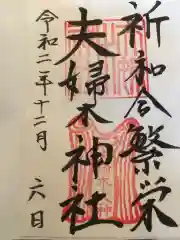 祈和合繁栄
夫婦木神社
令和二年十二月
六日